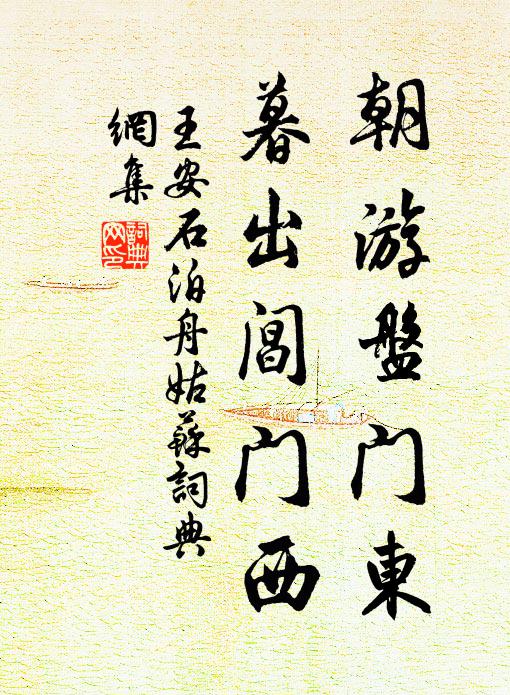 朝游盤门東
暮出閶门西
王安石泊舟姑蘇詞典
網集
詞典
网印